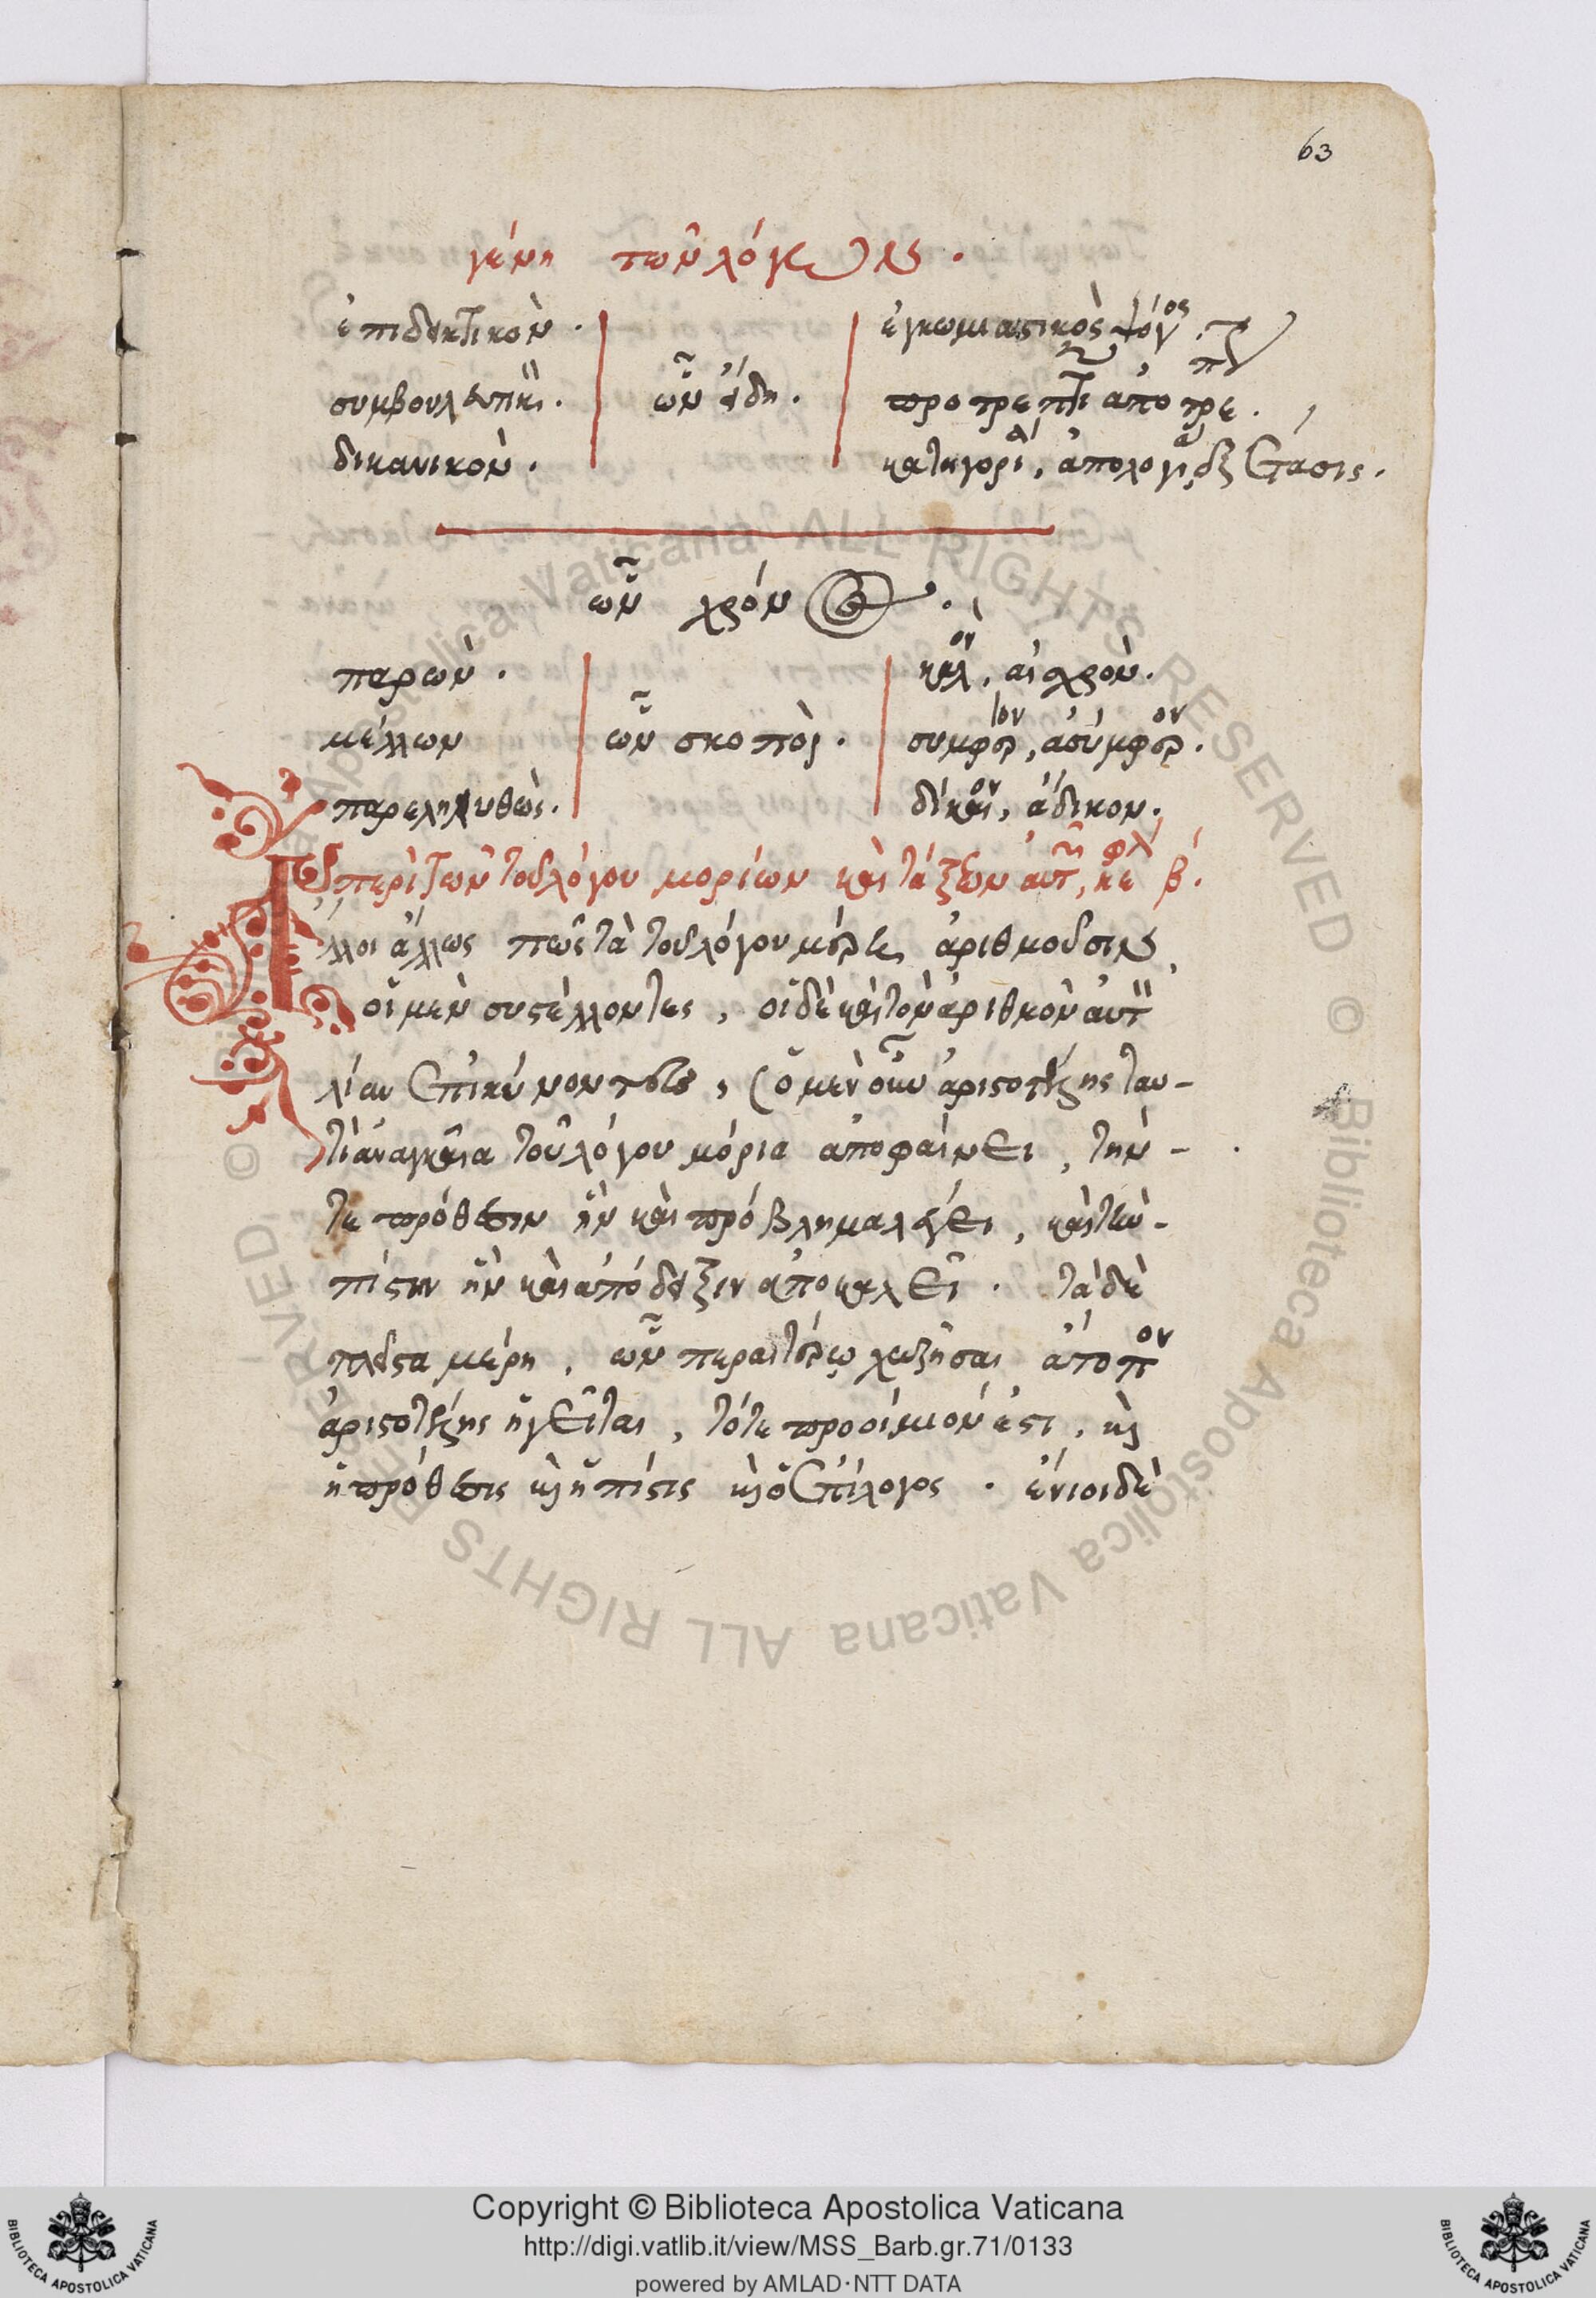 63
γένη τῶν λόγων .
ἐπιδεικτικὸν . ἐγκωμιαστικὸς ψόγος
συμβουλευτικ . ὧν εἴδη . προτρεπτι ἀποτρε .
δικανικὸν . κατηγορί , ἀπολογί στάσις .
ὧν χρόνος .
παρὼν . καλὸν , αἰσχρὸν .
μέλλων ὧν σκοπὸς . συμφέρον , ἀσύμφορον .
παρεληλυθὼς . δίκαιον , ἄδικον .
περὶ τῶν τοῦ λόγου μορίων καὶ τάξεων αὐτῶν , κεφαλ β .
Ἄλλοι ἄλλως πῶς τὰ τοῦ λόγου μέρη ἀριθμοῦσιν
οἱ μὲν συστέλλοντες , οἱ δὲ καὶ τὸν ἀριθμὸν αὐτ
λίαν ἐπεκτείνοντες , ὁ μὲν οὖν ἀριστοτέλης ταυ-
τὶ ἀναγκαῖα τοῦ λόγου μόρια ἀποφαίνει , τήν -
τε πρόθεσιν ἣν καὶ πρόβλημα λέγει , καὶ τὴν -
πίστιν ἣν καὶ ἀπόδειξιν ἀποκαλεῖ . τὰ δὲ
πλεῖστα μέρη , ὧν περαιτέρω χωρῆσαι ἄτοπον
ἀριστοτέλης ἡγεῖται , τό τε προοίμιόν ἐστι , καὶ
ἡ πρόθεσις καὶ ἡ πίστις καὶ ὁ ἐπίλογος . ἔνιοι δὲ
Copyright © Biblioteca Apostolica Vaticana
http://digi.vatlib.it/view/MSS_Barb.gr.71/0133
powered by AMLAD·NTT DATA